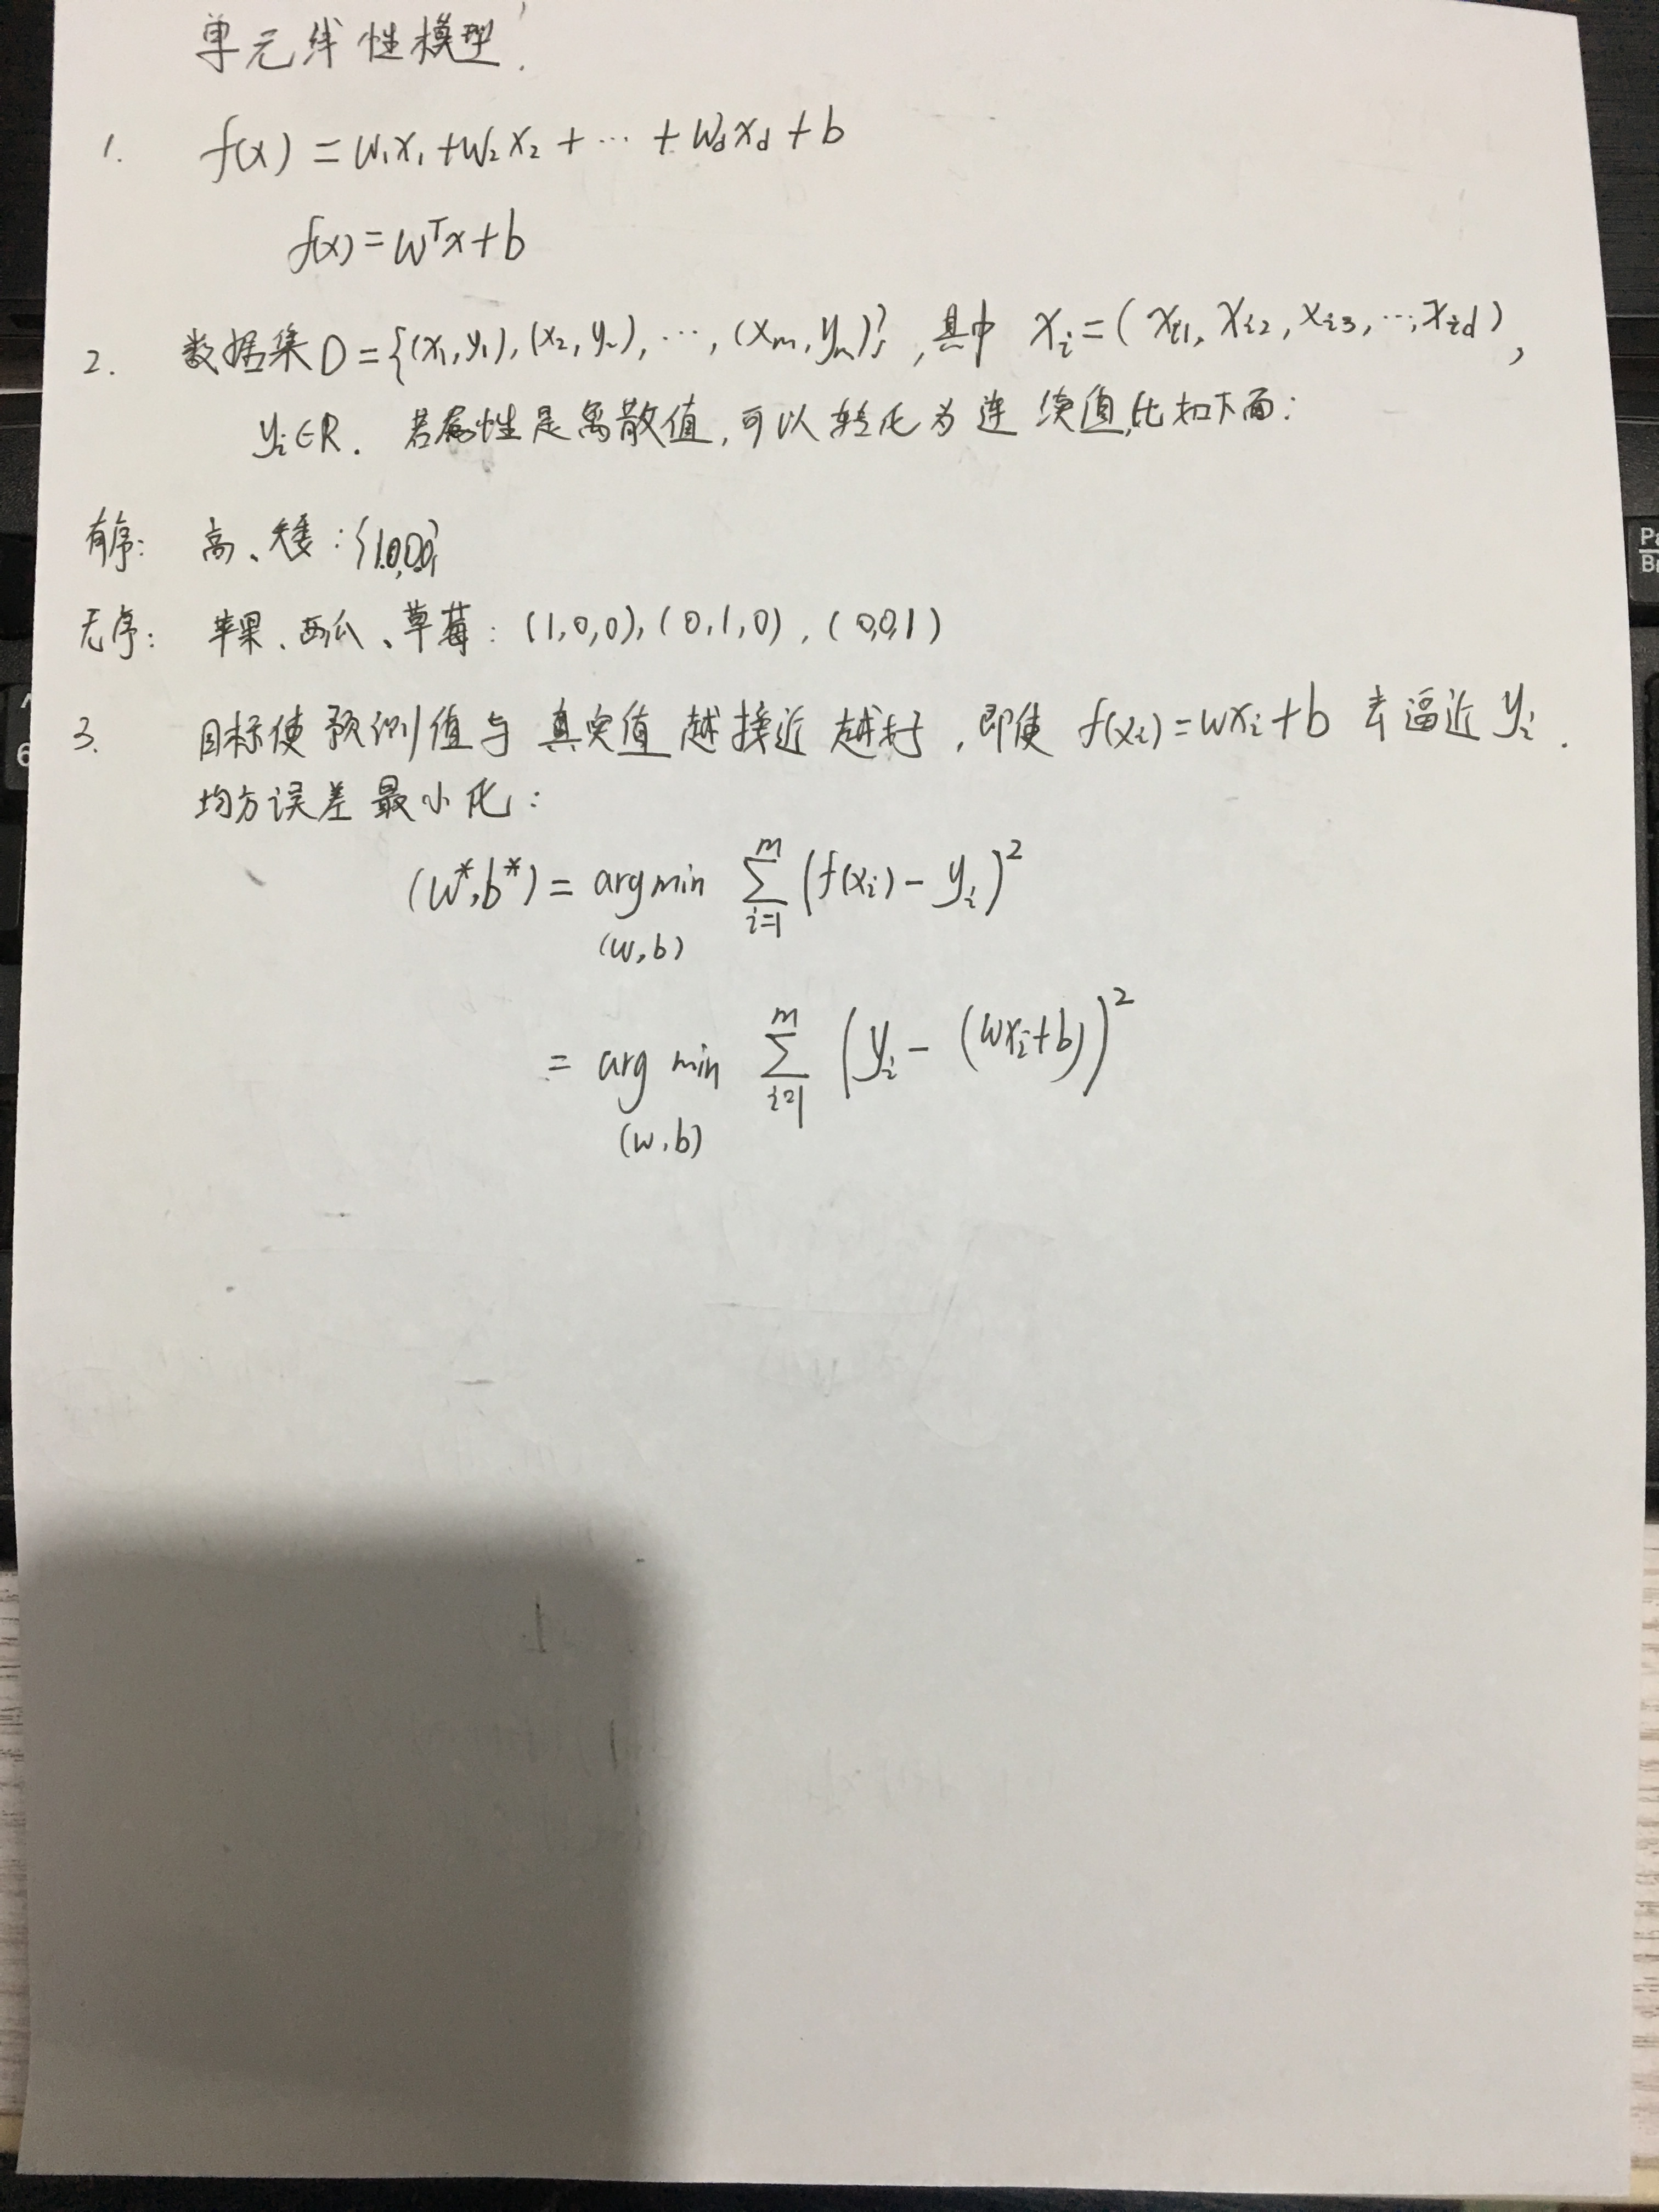 单元线性模型.
1. f(x) = w₁x₁ + w₂x₂ + ⋯ + w_d x_d + b
f(x) = wᵀx + b
2. 数据集 D = {(x₁, y₁), (x₂, y₂), ⋯, (x_m, y_m)}, 其中 x_i = (x_i1, x_i2, x_i3, ⋯, x_id),
y_i ∈ R. 若属性是离散值, 可以转化为连续值, 比如下面:
有序: 高、矮: {1.0, 0.0}
无序: 苹果、西瓜、草莓: (1,0,0), (0,1,0), (0,0,1)
3. 目标使预测值与真实值越接近越好, 即使 f(x_i) = wx_i + b 去逼近 y_i.
均方误差最小化:
(w*, b*) = arg min_(w,b) ∑_{i=1}^{m} (f(x_i) - y_i)²
= arg min_(w,b) ∑_{i=1}^{m} (y_i - (wx_i + b))²